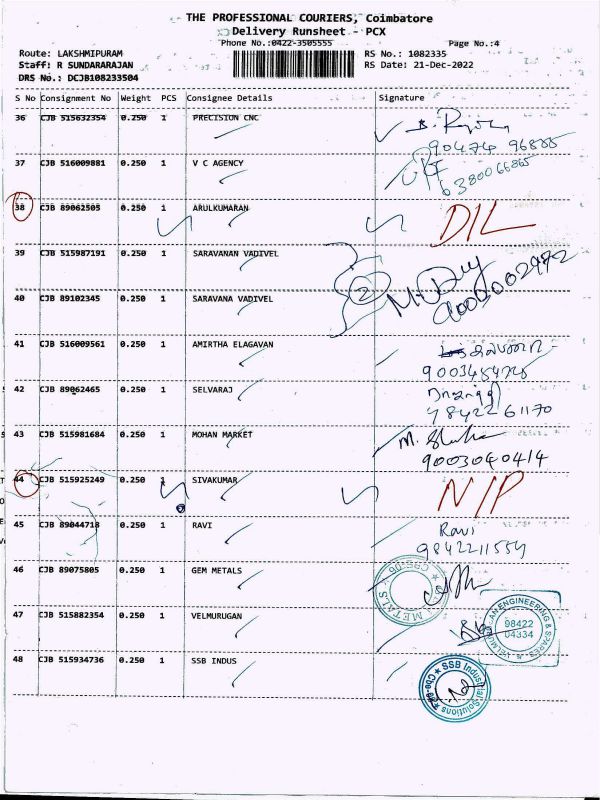 THE PROFESSIONAL COURIERS, Coimbatore
Delivery Runsheet - PCX
Phone No.:0422-3505555 Page No.:4
Route: LAKSHMIPURAM RS No.: 1082335
Staff: R SUNDARARAJAN RS Date: 21-Dec-2022
DRS No.: DCJB108233504
S No Consignment No Weight PCS Consignee Details Signature
36 CJB 515632354 0.250 1 PRECISION CNC
90474 96855
37 CJB 516009881 0.250 1 V C AGENCY
6380066865
38 CJB 89062505 0.250 1 ARULKUMARAN D/L
39 CJB 515987191 0.250 1 SARAVANAN VADIVEL
2
40 CJB 89102345 0.250 1 SARAVANA VADIVEL
41 CJB 516009561 0.250 1 AMIRTHA ELAGAVAN
42 CJB 89062465 0.250 1 SELVARAJ
98422 61170
43 CJB 515981684 0.250 1 MOHAN MARKET
9003040414
44 CJB 515925249 0.250 1 SIVAKUMAR N/P
45 CJB 89044718 0.250 1 RAVI Ravi
9842211559
46 CJB 89075805 0.250 1 GEM METALS
METALS
CBE-06
47 CJB 515882354 0.250 1 VELMURUGAN
VELMURUGAN ENGINEERING & SPARES
98422
04334
48 CJB 515934736 0.250 1 SSB INDUS
SSB Industrial Solutions